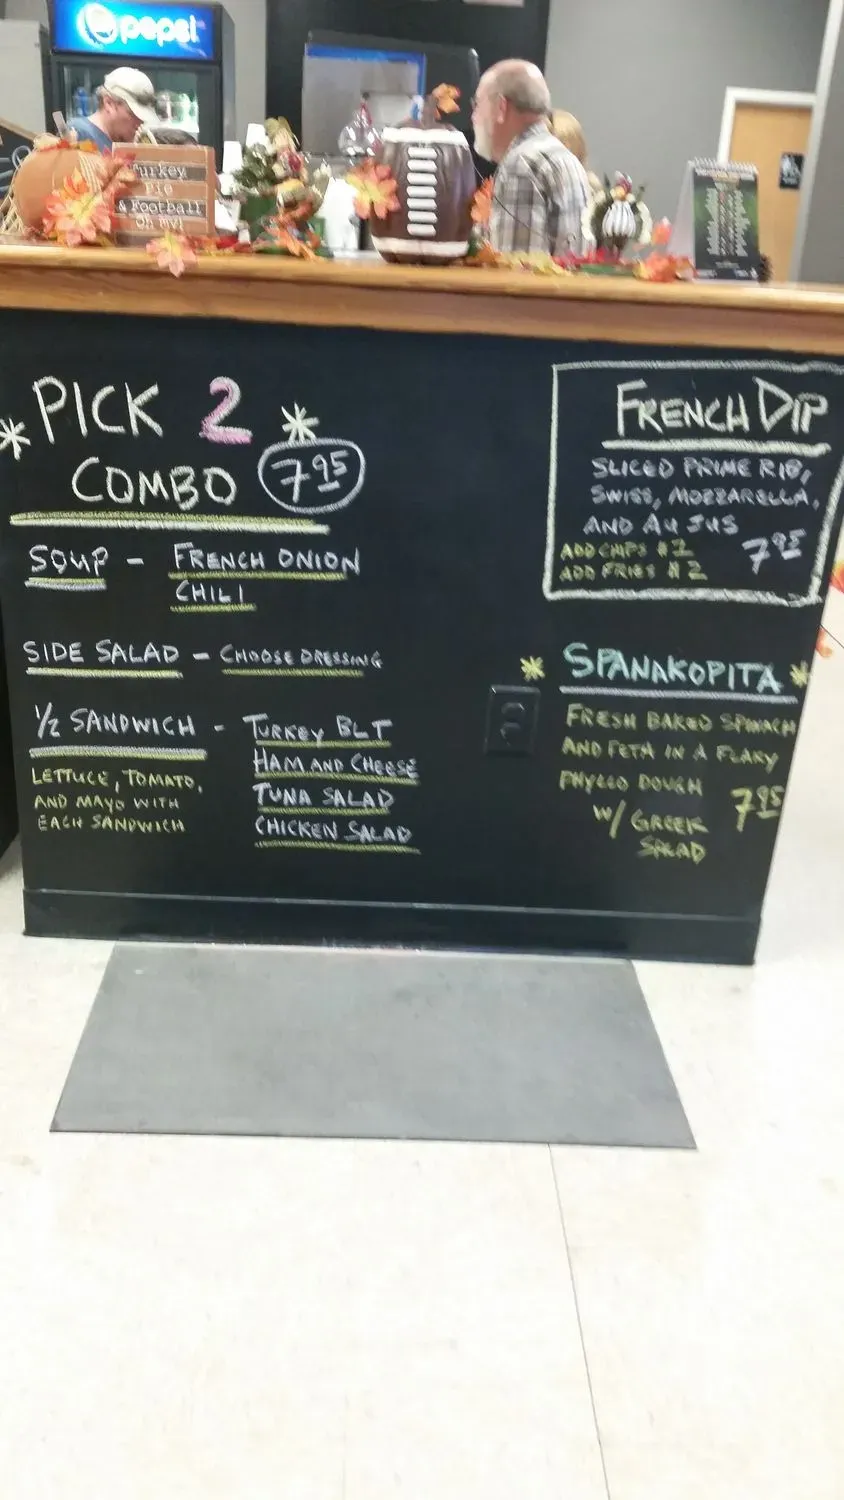 pepsi
Turkey
Pie
& Football
Oh my!
PICK 2
COMBO 7.95
SOUP - FRENCH ONION
CHILI
SIDE SALAD - CHOOSE DRESSING
1/2 SANDWICH - TURKEY BLT
HAM AND CHEESE
TUNA SALAD
CHICKEN SALAD
LETTUCE, TOMATO,
AND MAYO WITH
EACH SANDWICH
FRENCH DIP
SLICED PRIME RIB,
SWISS, MOZZARELLA,
AND AU JUS
ADD CHIPS $1
ADD FRIES $2
7.95
SPANAKOPITA
FRESH BAKED SPINACH
AND FETA IN A FLAKY
PHYLLO DOUGH
W/ GREEK
SALAD
7.95